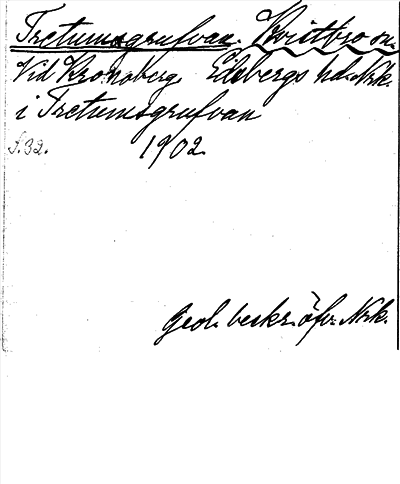 Tretumsgrufvan. Kvistbro sn.
Vid Kronoberg. Edsbergs hd. Nrk.
i Tretumsgrufvan
S.32. 1902.
Geol. beskr. öfv. Nrk.